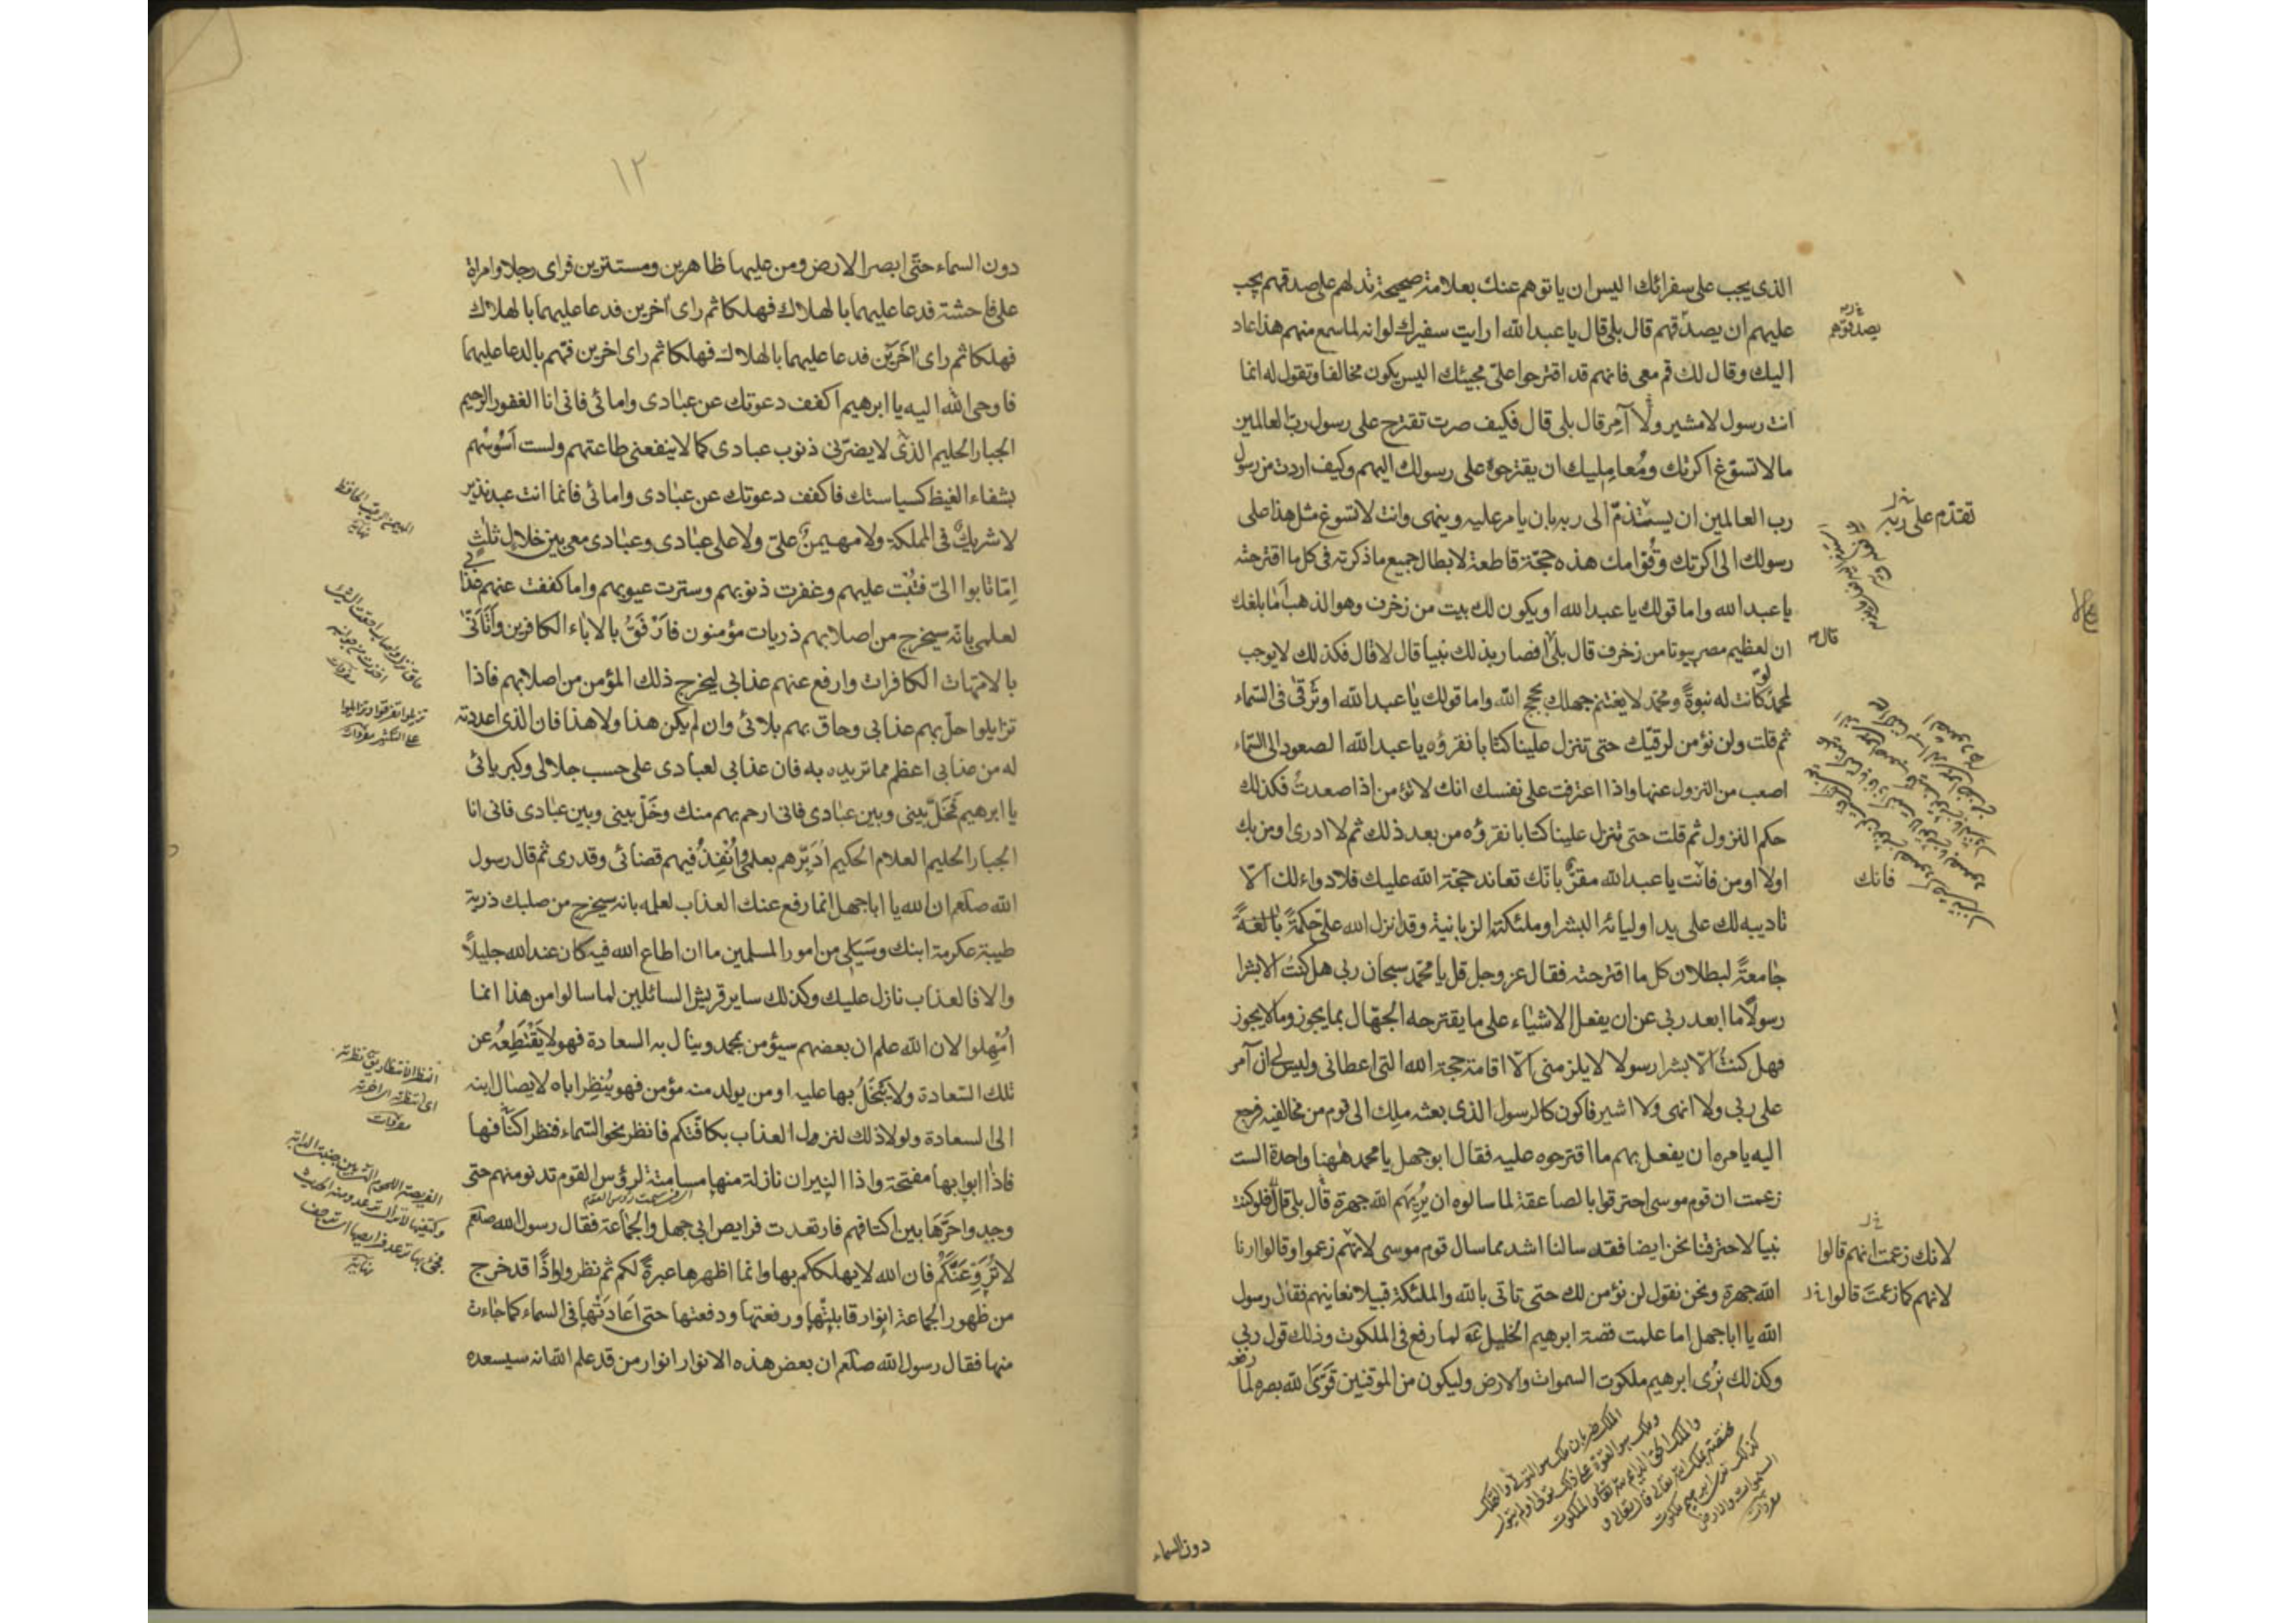 الذى يجب على سفرائك اليس ان ياتوهم عنك بعلامة صحيحة تدلهم على صدقهم يجب
عليهم ان يصدقهم قال بلى قال يا عبد الله ارايت سفيرك لو انه لما سمع منهم هذا عاد
اليك وقال لك قم معى فانهم قد اقترحوا علىّ مجيئك اليس يكون مخالفا وتقول له انما
انت رسول لا مشير ولا آمر قال بلى قال فكيف صرت تقترح على رسول رب العالمين
ما لا تسوّغ اكرتك ومُعامِليك ان يقترحوه على رسولك اليهم وكيف اردت من رسول
رب العالمين ان يستذمّ الى ربه بان يامر عليه وينهى وانت لا تسوغ مثل هذا على
رسولك الى اكرتك وقُوّامك هذه حجّة قاطعة لابطال جميع ما ذكرته فى كل ما اقترحته
يا عبد الله واما قولك يا عبد الله او يكون لك بيت من زخرف وهو الذهب اما بلغك
ان لعظيم مصر بيوتا من زخرف قال بلى افصار بذلك نبيا قال لا قال فكذلك لا يوجب
لمحمد لو كانت له نبوةً ومحمد لا يغتنم جهلك بحجج الله واما قولك يا عبد الله او ترقى فى السّماء
ثم قلت ولن نؤمن لرقيّك حتى تنزل علينا كتابا نقرؤه يا عبد الله الصعود الى السّماء
اصعب من النزول عنها واذا اعترفت على نفسك انك لا تؤمن اذا صعدتُ فكذلك
حكم النزول ثم قلت حتى تنزل علينا كتابا نقرؤه من بعد ذلك ثم لا ادرى اومن بك
اولا اومن فانت يا عبد الله مقرّ بانّك تعاند حجّة الله عليك فلا دواء لك الّا
تاديبه لك على يد اوليائه البشر او ملئكته الزبانية وقد انزل الله علىّ حكمةً بالغةً
جامعةً لبطلان كل ما اقترحته فقال عز وجل قل يا محمّد سبحان ربى هل كنت الا بشرا
رسولًا ما ابعد ربى عن ان يفعل الاشياء على ما يقترحه الجهّال بما يجوز وما لا يجوز
فهل كنتُ الّا بشرا رسولا لا يلزمنى الّا اقامة حجة الله التى اعطانى وليس لى ان آمر
على ربى ولا انهى ولا اشير فاكون كالرسول الذى بعثه ملِك الى قوم من مخالفيه فرجع
اليه يامره ان يفعل بهم ما اقترحوه عليه فقال ابو جهل يا محمد ههنا واحدة الست
زعمت ان قوم موسى احترقوا بالصاعقة لما سالوه ان يُرِيَهم الله جهرة قال بلى قال فلو كنت
نبيا لاحترقنا نحن ايضا فقد سالنا اشد مما سال قوم موسى لانهم زعموا وقالوا ارنا
الله جهرة ونحن نقول لن نؤمن لك حتى تاتى بالله والملئكة قبيلا نعاينهم فقال رسول
الله يا ابا جهل اما علمت قصة ابرهيم الخليل عم لما رفع فى الملكوت وذلك قول ربى
وكذلك نُرى ابرهيم ملكوت السموات والارض وليكون من الموقنين قوّى الله بصره لمّا رفعه
يصدقوهم
تقدّم على ربه
قال
فانك
لانك زعمت انهم قالوا
لانهم كما زعمت قالوا
كذلك نرى ابرهيم ملكوت
السموات والارض
مفردات
دون السماء
١٢
دون السماء حتّى ابصر الارض ومن عليها ظاهرين ومستترين فراى رجلا وامراة
على فاحشة فدعا عليهما بالهلاك فهلكا ثم راى آخرين فدعا عليهما بالهلاك
فهلكا ثم راى آخَرَيْن فدعا عليهما بالهلاك فهلكا ثم راى اخرين فهّم بالدعا عليهما
فاوحى الله اليه يا ابرهيم اكفف دعوتك عن عبادى وامائى فانى انا الغفور الرحيم
الجبار الحليم الذى لا يضرّنى ذنوب عبادى كما لا ينفعنى طاعتهم ولست اَسُوسُهم
بشفاء الغيظ كسياستك فاكفف دعوتك عن عبادى وامائى فانما انت عبد نذير
لا شريكٌ فى المملكة ولا مهيمنٌ علىّ ولا على عبادى وعبادى معى بين خلال ثلث
اِمّا تابوا الىّ فتُبْت عليهم وغفرت ذنوبهم وسترت عيوبهم واما كففت عنهم عذابى
لعلمى بانّه سيخرج من اصلابهم ذريات مؤمنون فارْفَقُ بالاباء الكافرين واَتَانّى
بالامّهات الكافرات وارفع عنهم عذابى ليخرج ذلك المؤمن من اصلابهم فاذا
تزايلوا حلّ بهم عذابى وحاق بهم بلائى وان لم يكن هذا ولا هذا فان الذى اعددته
له من عذابى اعظم مما تريده به فان عذابى لعبادى على حسب جلالى وكبريائى
يا ابرهيم فَخَلِّ بينى وبين عبادى فانى ارحم بهم منك وخَلّ بينى وبين عبادى فانى انا
الجبار الحليم العلام الحكيم اُدَبِّرهم بعلمى واُنْفِذُ فيهم قضائى وقدرى ثم قال رسول
الله صلعم ان الله يا ابا جهل انما رفع عنك العذاب لعلمه بانه سيخرج من صلبك ذرية
طيبة عكرمة ابنك وسَيَلِى من امور المسلمين ما ان اطاع الله فيه كان عند الله جليلًا
والا فالعذاب نازل عليك وكذلك ساير قريش السائلين لما سالوا من هذا انما
اُمْهِلوا لان الله علم ان بعضهم سيؤمن بمحمد وينال به السعادة فهو لا يَقْتَطِعُه عن
تلك السّعادة ولا يَبْخَلُ بها عليه او من يولد منه مؤمن فهو يُنظِر اباه لايصال ابنه
الى السعادة ولولا ذلك لنزول العذاب بكافّتكم فانظر نحو السّماء فنظر اكنافها
فاذا ابوابها مفتحة واذا النيران نازلة منها مسامتة لرؤس القوم تدنو منهم حتى
وجدوا حَرَّهَا بين اكتافهم فارتعدت فرايص ابى جهل والجماعة فقال رسول الله صلعم
لا تُرَوِّعَنَّكُمْ فان الله لا يهلككم بها وانما اظهرها عبرةً لكم ثم نظروا واذًا قد خرج
من ظهور الجماعة انوار قابلَتْها ورفعتها ودفعتها حتى اَعَادَتْها فى السماء كما جاءت
منها فقال رسول الله صلعم ان بعض هذه الانوار انوار من قد علم الله انه سيسعده